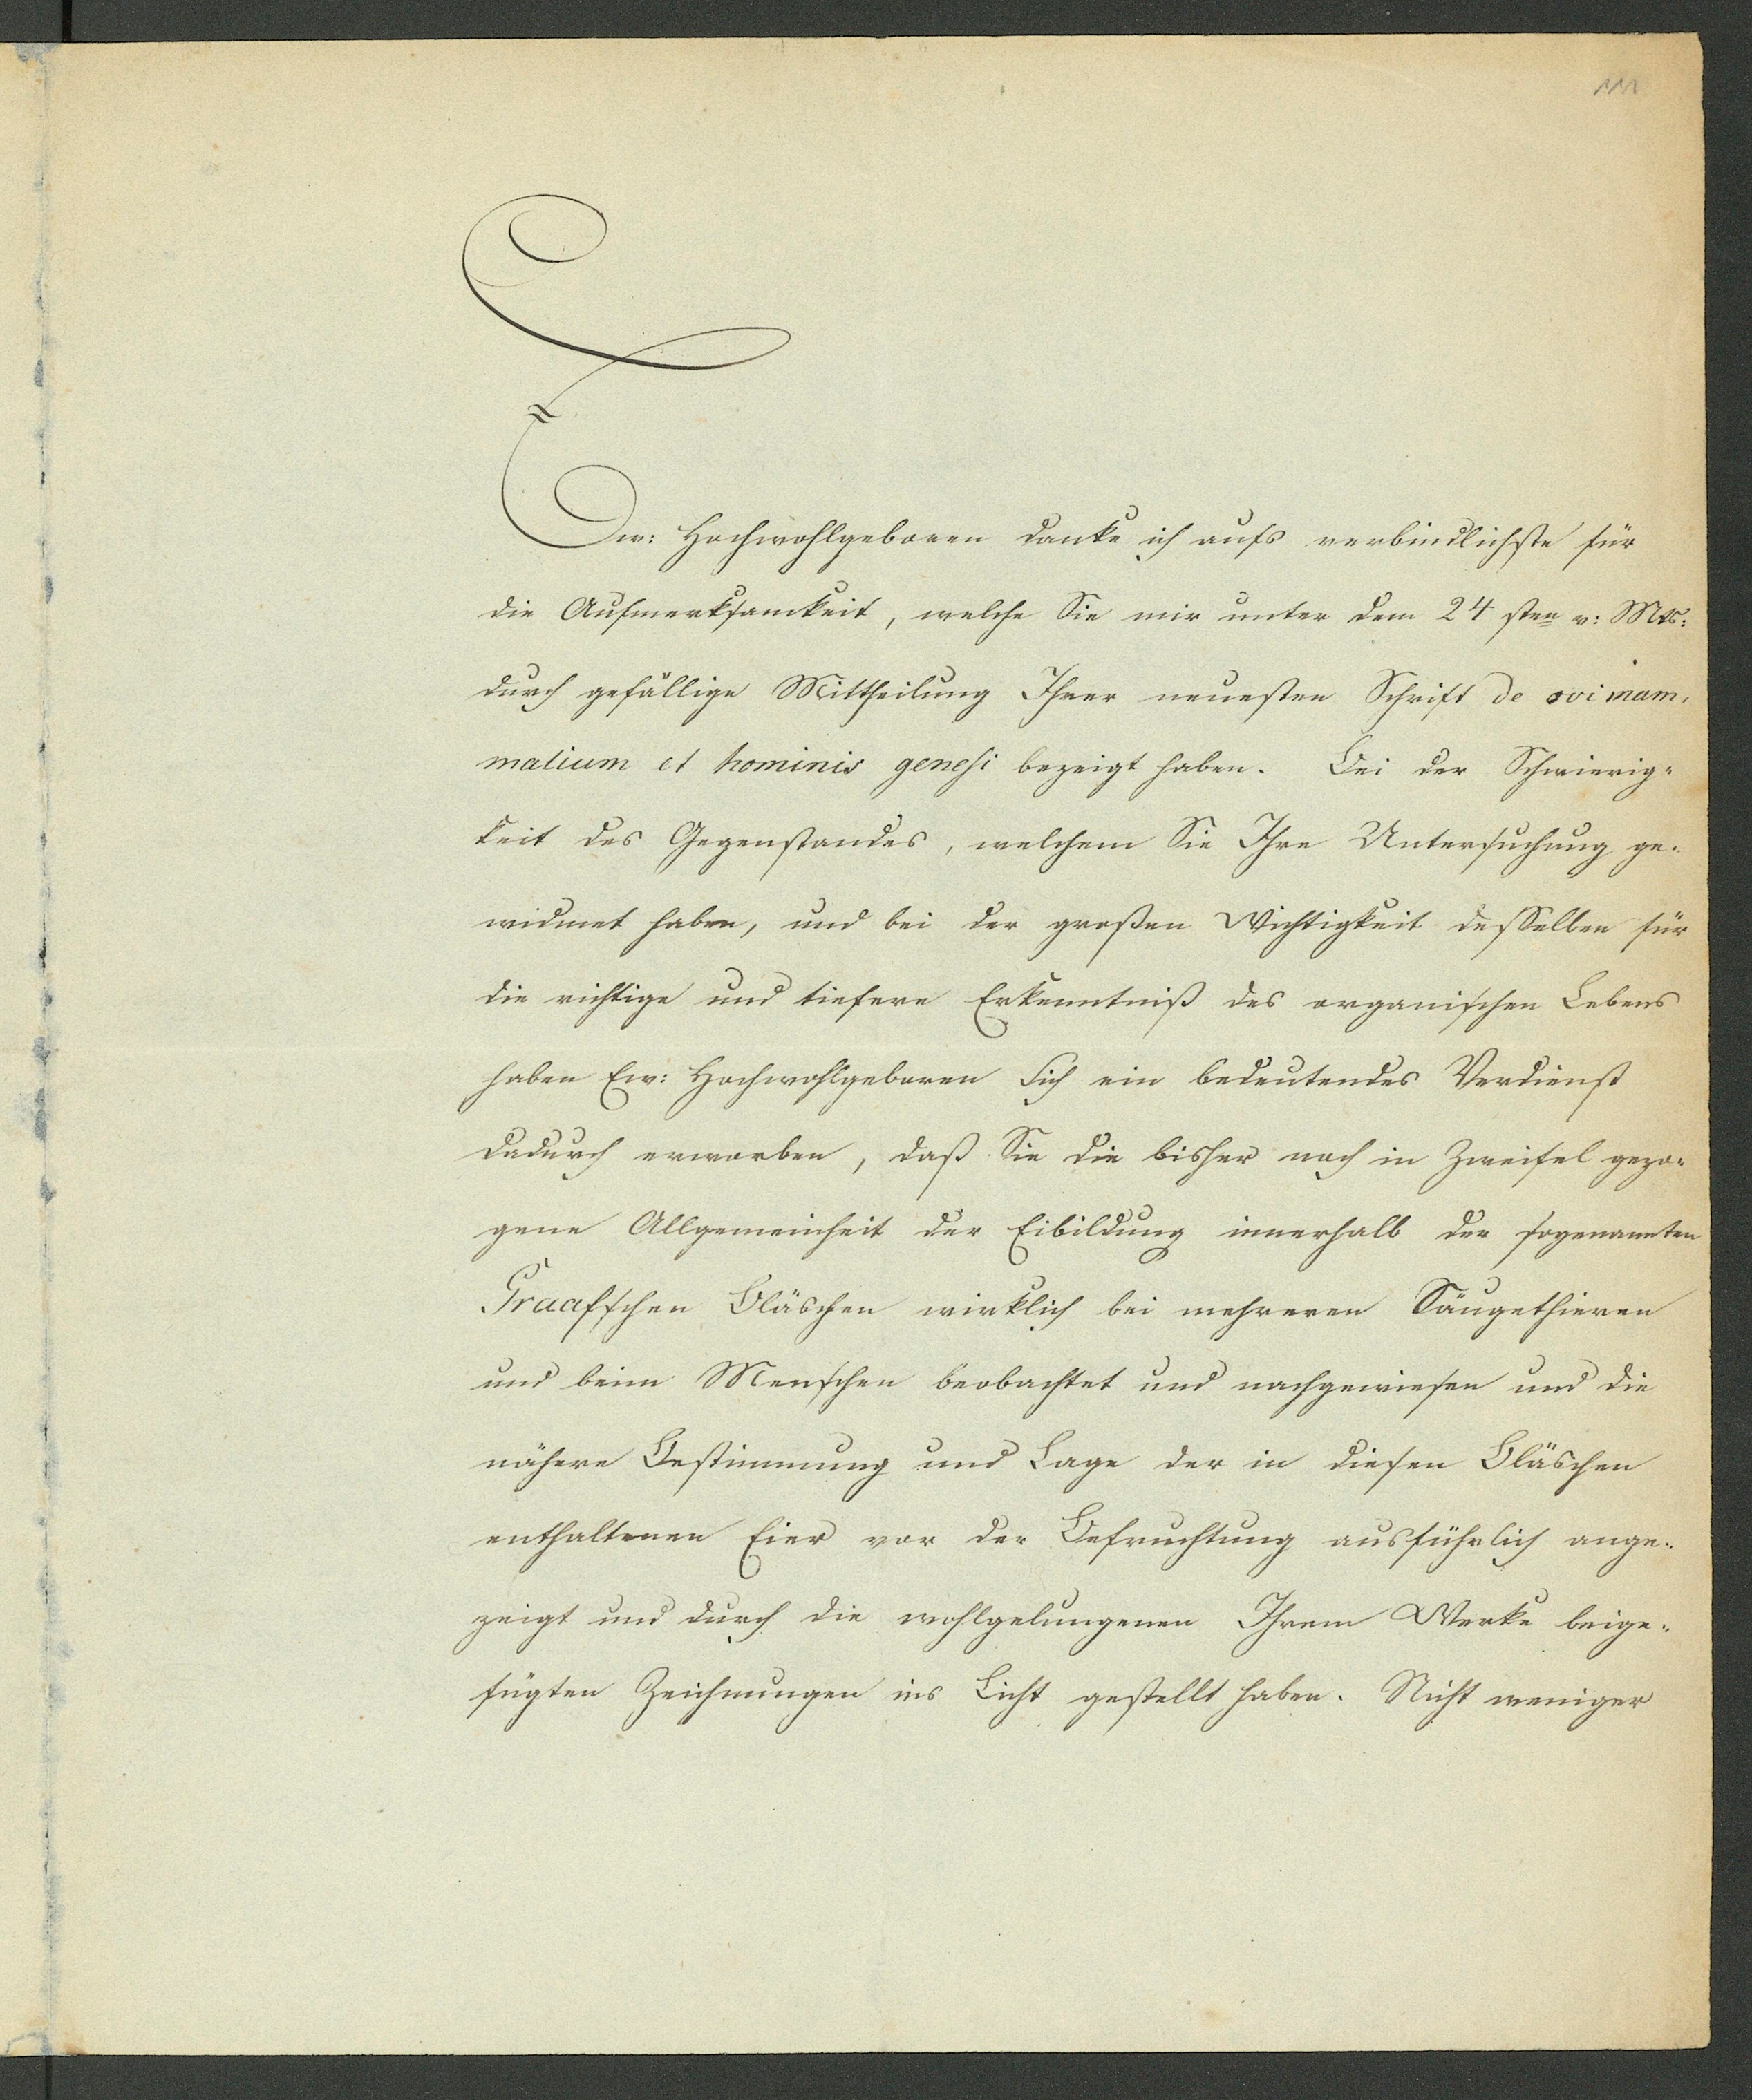 111
Ew: Hochwohlgeboren danke ich aufs verbindlichste für
die Aufmerksamkeit, welche Sie mir unter dem 24 sten v: Mts:
durch gefällige Mittheilung Ihrer neuesten Schrift de ovi mam-
malium et hominis genesi bezeigt haben. Bei der Schwierig-
keit des Gegenstandes, welchem Sie Ihre Untersuchung ge-
widmet haben, und bei der großen Wichtigkeit desselben für
die richtige und tiefere Erkenntniß des organischen Lebens
haben Ew: Hochwohlgeboren Sich ein bedeutendes Verdienst
dadurch erworben, daß Sie die bisher noch in Zweifel gezo-
gene Allgemeinheit der Eibildung innerhalb der sogenannten
Graafschen Bläschen wirklich bei mehreren Säugethieren
und beim Menschen beobachtet und nachgewiesen und die
nähere Bestimmung und Lage der in diesen Bläschen
enthaltenen Eier vor der Befruchtung ausführlich ange-
zeigt und durch die wohlgelungenen Ihrem Werke beige-
fügten Zeichnungen ins Licht gestellt haben. Nicht weniger